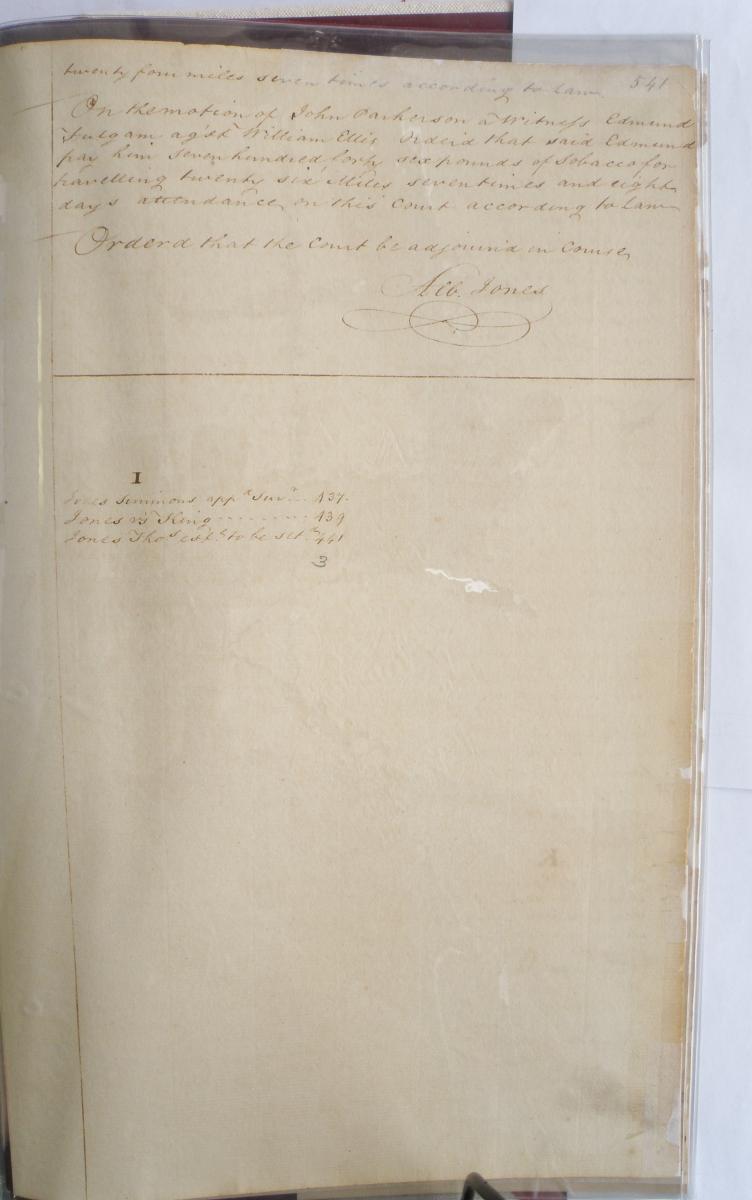 541
twenty four miles seven times according to Law
On the motion of John Parkerson a Witness Edmund
Fulgam agst William Ellis Orderd that said Edmund
pay him seven hundred forty six pounds of Tobacco for
travelling twenty six Miles seven times and eight
days attendance on this Court according to Law
Orderd that the Court be adjournd in Course
Jones
I
Simmons appd Survr 437
Jones vs King 439
Jones Thos estt to be setd 441
3